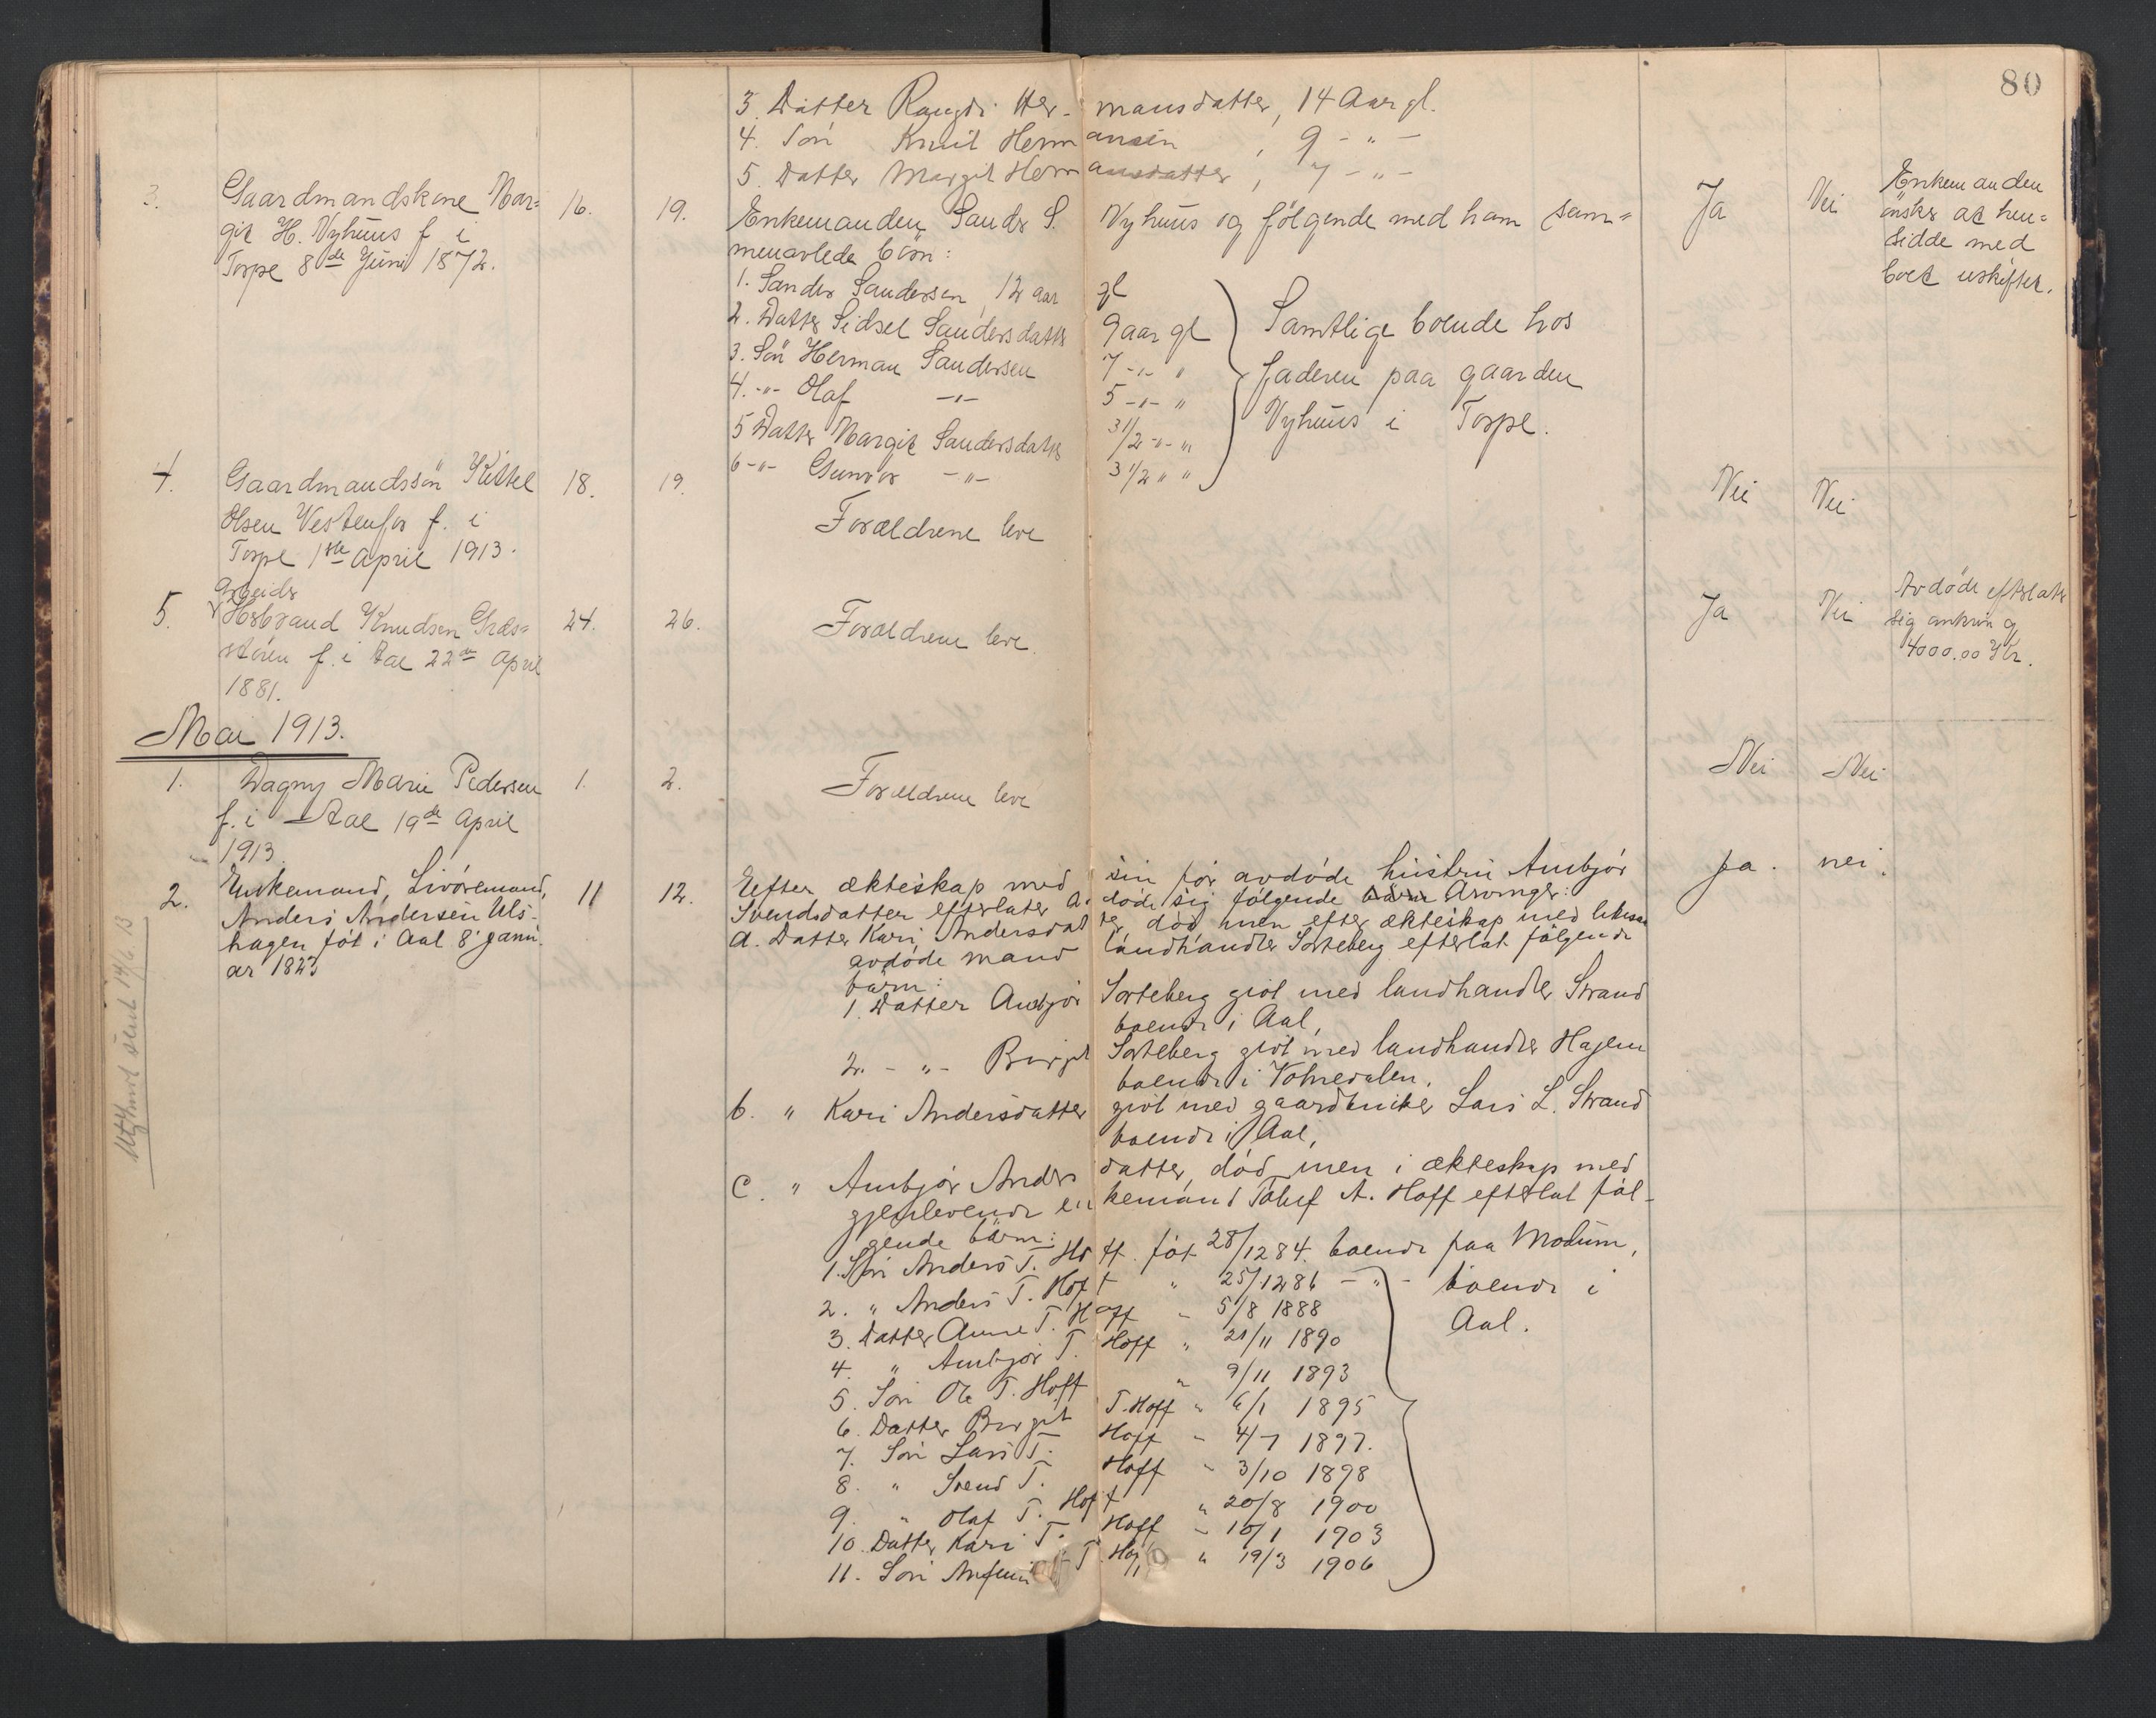 80
3. Datter Rangdi Hermansdatter, 14 Aar gl.
4. Sön Knut Hermansen, 9 - " -
5. Datter Margit Hermansdatter, 7 - " -
3. Gaardmandskone Mar= 16. 19. Enkemanden Sander S. Nyhuus og følgende med ham sam= Ja Nei Enkemanden
git H. Nyhuus f. i menavlede börn: ønsker at hen=
Torpe 8de Juni 1872. sidde med
boet uskiftet.
1. Sander Sandersen, 12 aar gl
2. Datter Sidsel Sandersdatter 9 aar gl Samtlige boende hos
3. Sön Herman Sandersen 7 -"- " faderen paa gaarden
4. -"- Olaf -"- 5 -"- " Nyhuus i Torpe.
5 Datter Margit Sandersdatter 3 1/2 -"- "
6 -"- Gunvor -"- 3 1/2 " "
4. Gaardmandssön Kittel 18. 19. Nei Nei
Olsen Vestenfor f. i Forældrene leve
Torpe 1ste April 1913.
Arbeider
5. Herbrand Knudsen Græs= 24. 26. Forældrene leve Ja Nei Avdøde efterlater
f. i Aal 22de April sig omkring
1881. 4000.00 Kr.
Mai 1913.
1. Dagny Marie Pedersen 1. 2. Forældrene leve Nei Nei
f. i Aal 19de April
1913.
2. Enkemand, Livöremand, 11 12. Eefter ækteskap med sin för avdöde hüstru Ambjör Ja. nei.
Anders Andersen Uls- Svendsdatter efterlater A. döde sig fölgende börn Arvinger:
hagen föt i Aal 8' janu- a. Datter Kari Andersdatter, död men efter ækteskap med likesaa
ar 1823 avdöde mand landhandler Sorteberg efterlat fölgende
börn:
1. Datter Ambjör Sorteberg givt med landhandler Strand
boende i Aal,
2. - " - Birgit Sorteberg givt med landhandler Hagen
boende i
b. " Kari Andersdatter givt med gaardbruker Lars L. Strand
boende i Aal,
c. " Ambjör Andersdatter, död men i ækteskap med
gjenlevende enkemand A. Hoff efterlat föl-
gende börn:
1. Sön Anders T. Hoff. föt 28/12 84. boende paa Modum,
2. " Anders T. Hoff " 25/12 86 - " - boende i
3. Datter Anne T. Hoff " 5/8 1888 Aal.
4. " Ambjör T. Hoff " 21/11 1890
5. Sön Ole T. Hoff " 9/11 1893
6. Datter Birgit T. Hoff " 6/1 1895
7. Sön Lars T. Hoff " 4/7 1897.
8. " Svend T. Hoff " 3/10 1898
9. " Olaf T. Hoff " 20/8 1900
10. Datter Kari T. Hoff " 10/1 1903
11. Sön T. Hoff " 19/3 1906
sent 14/6 13